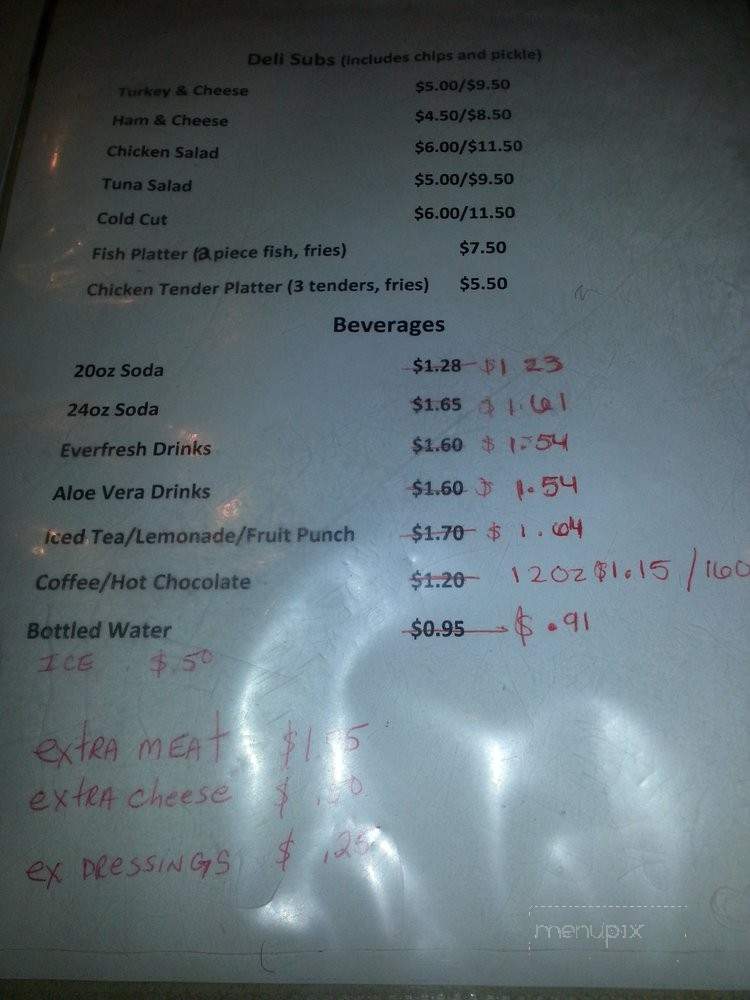 Deli Subs (includes chips and pickle)
Turkey & Cheese $5.00/$9.50
Ham & Cheese $4.50/$8.50
Chicken Salad $6.00/$11.50
Tuna Salad $5.00/$9.50
Cold Cut $6.00/11.50
Fish Platter (2 piece fish, fries) $7.50
Chicken Tender Platter (3 tenders, fries) $5.50
Beverages
20oz Soda $1.28 $1 23
24oz Soda $1.65 $1.61
Everfresh Drinks $1.60 $1.54
Aloe Vera Drinks $1.60 $1.54
Iced Tea/Lemonade/Fruit Punch $1.70 $1.64
Coffee/Hot Chocolate $1.20 12oz $1.15 /
Bottled Water $0.95 $.91
ICE $.50
extRA MEAt
extRA cheese
ex DRessINGS $.25
menupix